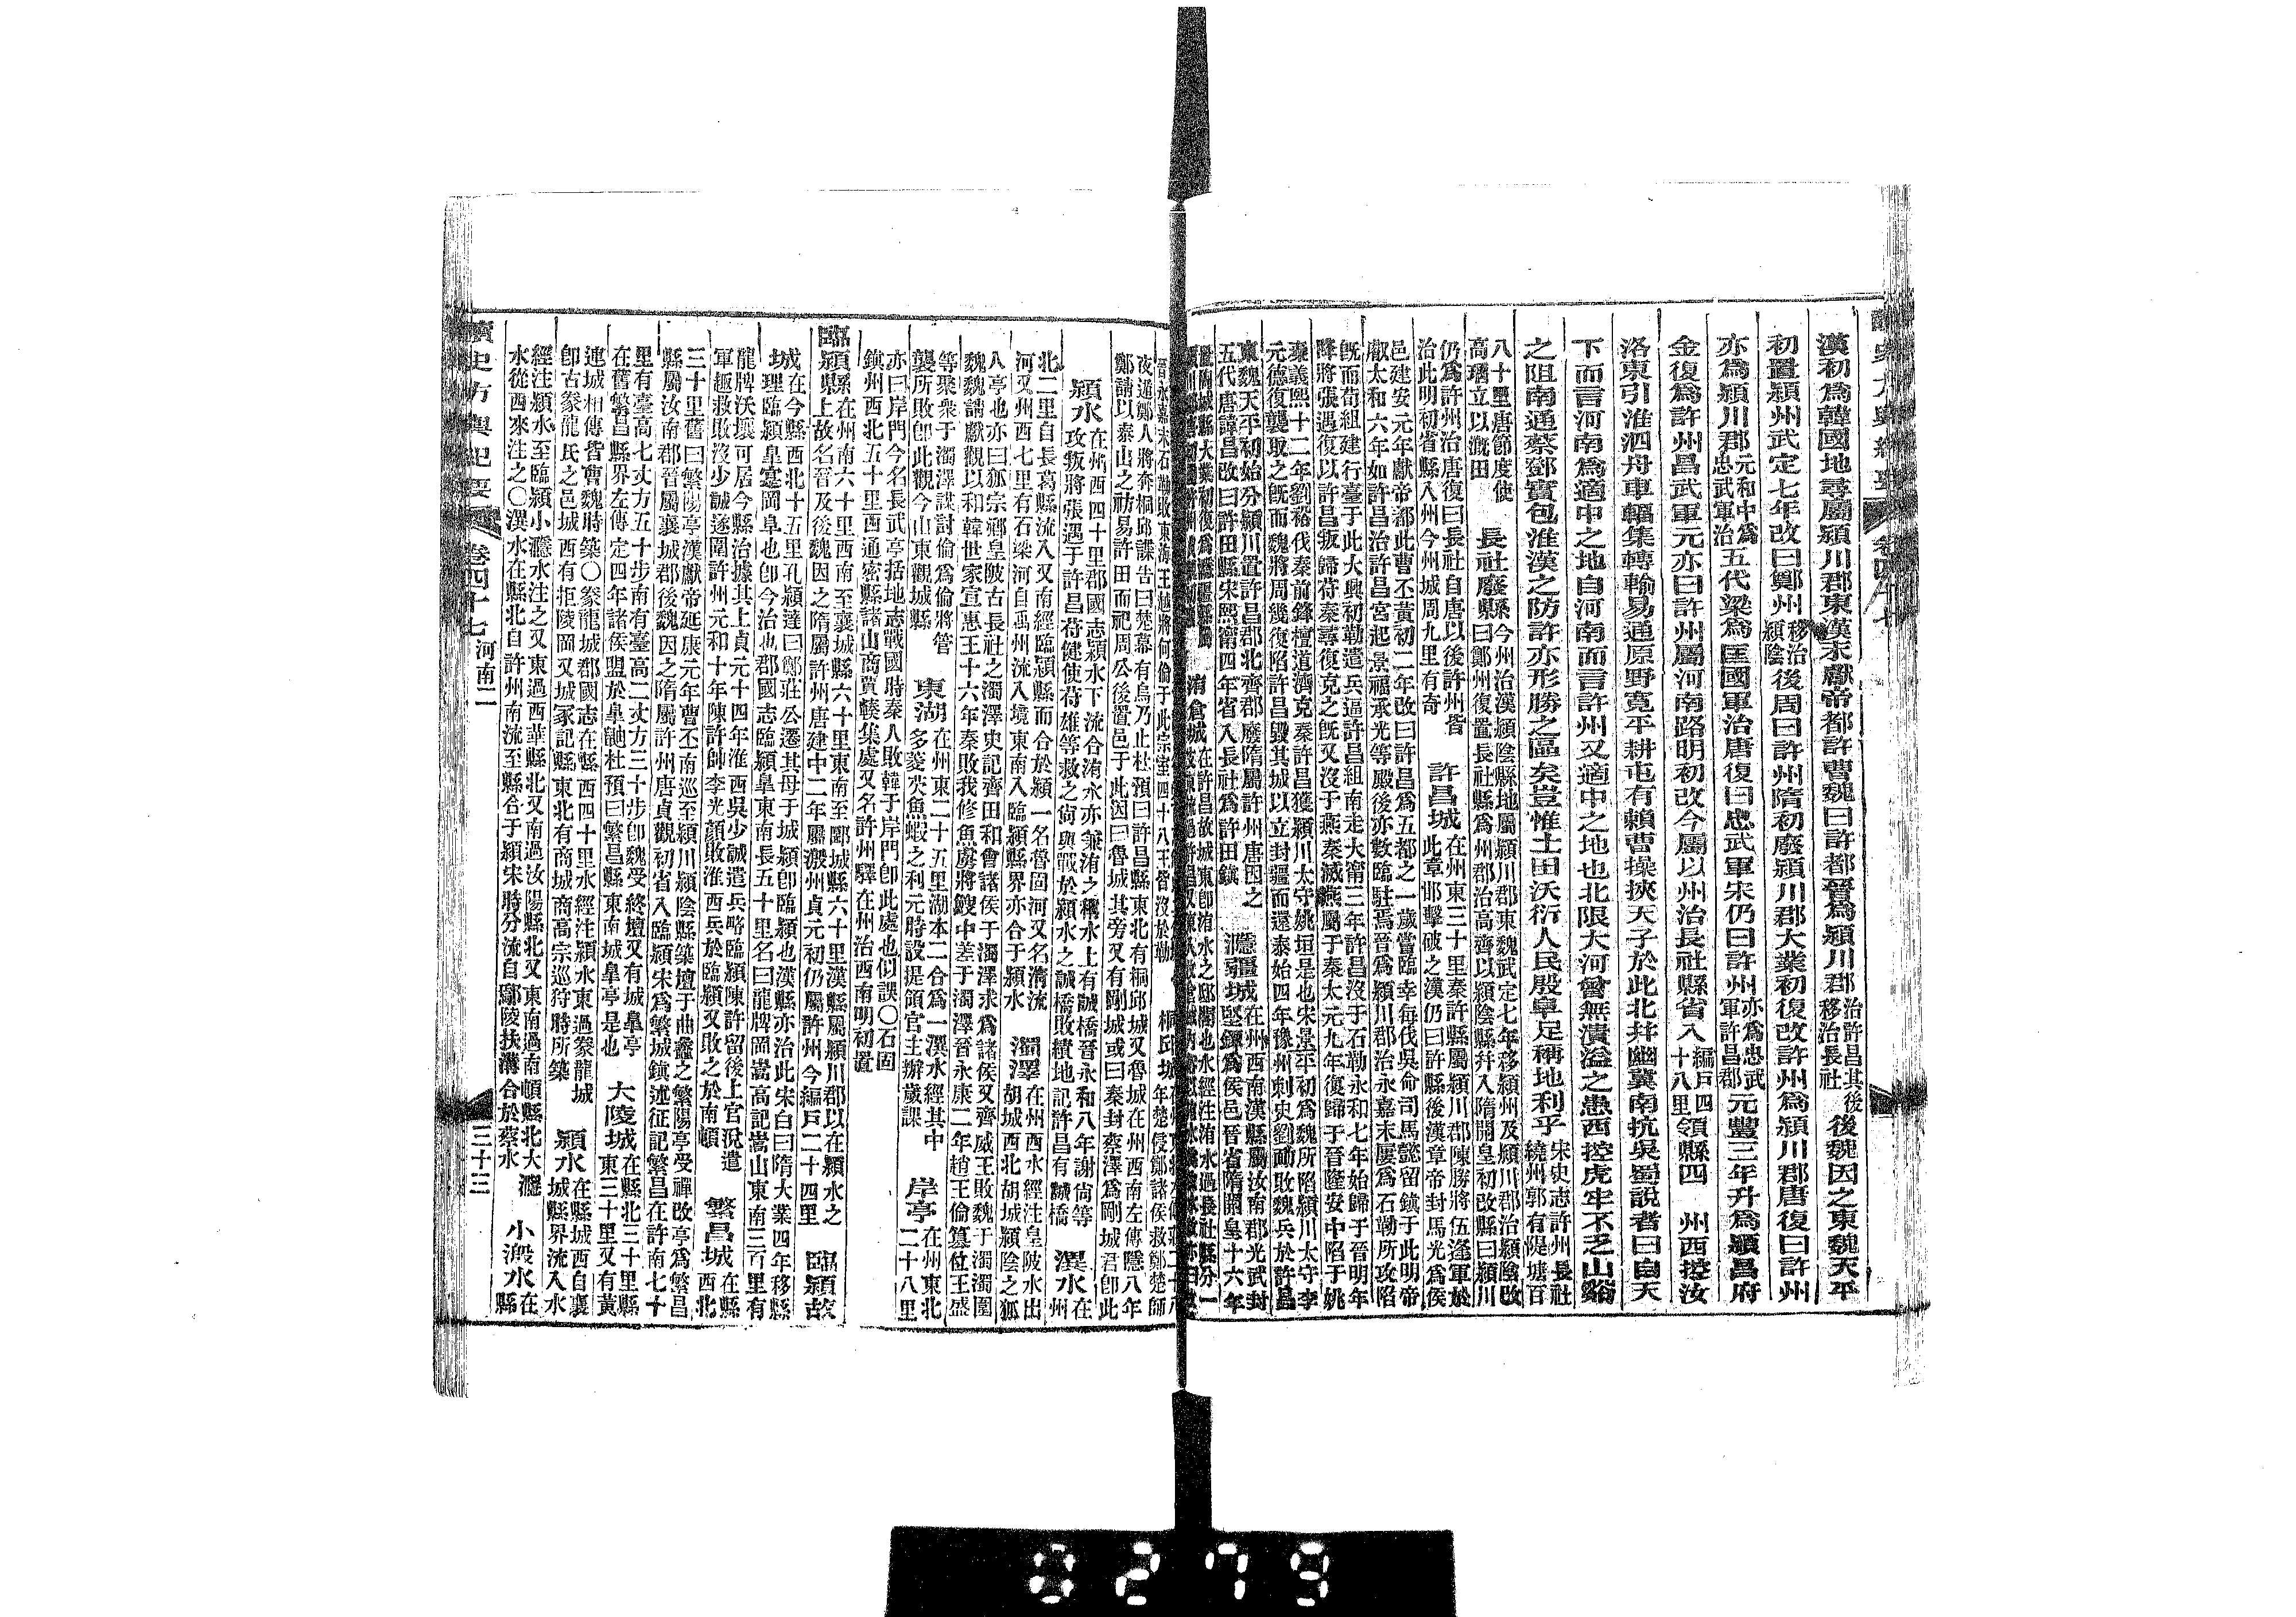 漢初爲韓國地尋屬潁川郡東漢末獻帝都許曹魏曰許都晉爲潁川郡治許昌其後移治長社後魏因之東魏天平
初置潁州武定七年改曰鄭州移治潁陰後周曰許州隋初廢潁川郡大業初復改許州爲潁川郡唐復曰許州
亦爲潁川郡元和中爲忠武軍治五代梁爲匡國軍治唐復曰忠武軍宋仍曰許州亦爲忠武軍許昌郡元豐三年升爲潁昌府
金復爲許州昌武軍元亦曰許州屬河南路明初改今屬以州治長社縣省入編戶四十八里領縣四 州西控汝
洛東引淮泗舟車輻集轉輸易通原野寬平耕屯有賴曹操挾天子於此北幷幽冀南抗吳蜀說者曰自天
下而言河南爲適中之地自河南而言許州又適中之地也北限大河曾無潰溢之患西控虎牢不乏山谿
之阻南通蔡鄧實包淮漢之防許亦形勝之區矣豈惟土田沃衍人民殷阜足稱地利乎宋史志許州長社繞州郭有隄塘百
八十里唐節度使高瑀立以溉田 長社廢縣今州治漢潁陰縣地屬潁川郡東魏武定七年移潁州及潁川郡治潁陰改曰鄭州復置長社縣爲州郡治高齊以潁陰縣幷入隋開皇初改縣曰潁川
仍爲許州治唐復曰長社自唐以後許州皆治此明初省縣入州今州城周九里有奇 許昌城在州東三十里秦許縣屬潁川郡陳勝將伍逢軍於此章邯擊破之漢仍曰許縣後漢章帝封馬光爲侯
邑建安元年獻帝都此曹丕黃初二年改曰許昌爲五都之一歲嘗臨幸每伐吳命司馬懿留鎮于此明帝
叡太和六年如許昌治許昌宮起景福承光等殿後亦數臨駐焉晉爲潁川郡治永嘉末屢爲石勒所攻陷
旣而荀組建行臺于此大興初勒遣兵逼許昌組南走大甯三年許昌沒于石勒永和七年始歸于晉明年
降將張遇復以許昌叛歸苻秦尋復克之旣又沒于燕秦滅燕屬于秦太元九年復歸于晉隆安中陷于姚
秦義熙十二年劉裕伐秦前鋒檀道濟克秦許昌獲潁川太守姚垣是也宋景平初爲魏所陷潁川太守李
元德復襲取之旣而魏將周幾復陷許昌毀其城以立封疆而還泰始四年豫州刺史劉勔敗魏兵於許昌
東魏天平初始分潁川置許昌郡北齊郡廢隋屬許州唐因之五代唐諱昌改曰許田縣宋熙甯四年省入長社爲許田鎮
夜遁鄭人將奔桐邱諜告曰楚幕有烏乃止杜預曰許昌縣東北有桐邱城又魯城在州西南左傳隱八年
鄭請以泰山之祊易許田而祀周公後置邑于此因曰魯城其旁又有剛城或曰秦封蔡澤爲剛城君卽此
潁水在州西四十里郡國志潁水下流合洧水亦兼洧之稱水上有誠橋晉永和八年謝尙等攻叛將張遇于許昌苻健使苻雄等救之尙與戰於潁水之誠橋敗績地記許昌有誠橋 潩水在州
北二里自長葛縣流入又南經臨潁縣而合於潁一名魯固河又名淸流河又州西七里有石梁河自禹州流入境東南入臨潁縣界亦合于潁水 濁澤在州西水經注皇陂水出胡城西北胡城潁陰之狐
八亭也亦曰狐宗鄉皇陂古長社之濁澤史記齊田和會諸侯于濁澤求爲諸侯又齊威王敗魏于濁澤圍
魏魏請獻觀以和韓世家宣惠王十六年秦敗我修魚虜將鍐申差于濁澤晉永康二年趙王倫簒位王盛
等聚衆于濁澤謀討倫爲倫將管襲所敗卽此觀今山東觀城縣 東湖在州東二十五里湖本二合爲一潩水經其中多菱芡魚蝦之利元時設提領官主辦歲課 岸亭在州東北二十八里
亦曰岸門今名長武亭括地志戰國時秦人敗韓于岸門卽此處也似誤〇石固鎮州西北五十里西通密縣諸山商賈輳集處又名許州驛在州治西南明初置
臨潁縣在州南六十里西南至襄城縣六十里東南至郾城縣六十里漢縣屬潁川郡以在潁水之上故名晉及後魏因之隋屬許州唐建中二年屬溵州貞元初仍屬許州今編戶二十四里 臨潁故
城在今縣西北十五里孔穎達曰鄭莊公遷其母于城潁卽臨潁也漢縣亦治此宋白曰隋大業四年移縣理臨潁皐㙡岡阜也卽今治也郡國志臨潁皐東南長五十里名曰龍牌岡嵩高記嵩山東南三百里有
龍牌沃壤可居今縣治據其上貞元十四年淮西吳少誠遣兵略臨潁陳許留後上官涗遣軍趣救敗沒少誠遂圍許州元和十年陳許帥李光顏敗淮西兵於臨潁又敗之於南頓 繁昌城在縣西北
三十里舊曰繁陽亭漢獻帝延康元年曹丕南巡至潁川潁陰縣築壇于曲蠡之繁陽亭受禪改亭爲繁昌
縣屬汝南郡晉屬襄城郡後魏因之隋屬許州唐貞觀初省入臨潁宋爲繁城鎮述征記繁昌在許南七十
里有臺高七丈方五十步南有臺高二丈方三十步卽魏受終壇又有城皐亭在舊繁昌縣界左傳定四年諸侯盟於皐鼬杜預曰繁昌縣東南城皐亭是也 大陵城在縣北三十里縣東三十里又有黃
連城相傳皆曹魏時築〇豢龍城郡國志在縣西四十里水經注潁水東過豢龍城卽古豢龍氏之邑城西有拒陵岡又城冢記縣東北有商城商高宗巡狩時所築 潁水在縣城西自襄城縣界流入水
經注潁水至臨潁小㶏水注之又東過西華縣北又南過汝陽縣北又東南過南頓縣北大㶏水從西來注之〇潩水在縣北自許州南流至縣合于潁宋時分流自鄢陵扶溝合於蔡水 小溵水在縣
讀史方輿紀要 卷四十七 河南二 三十三
0279